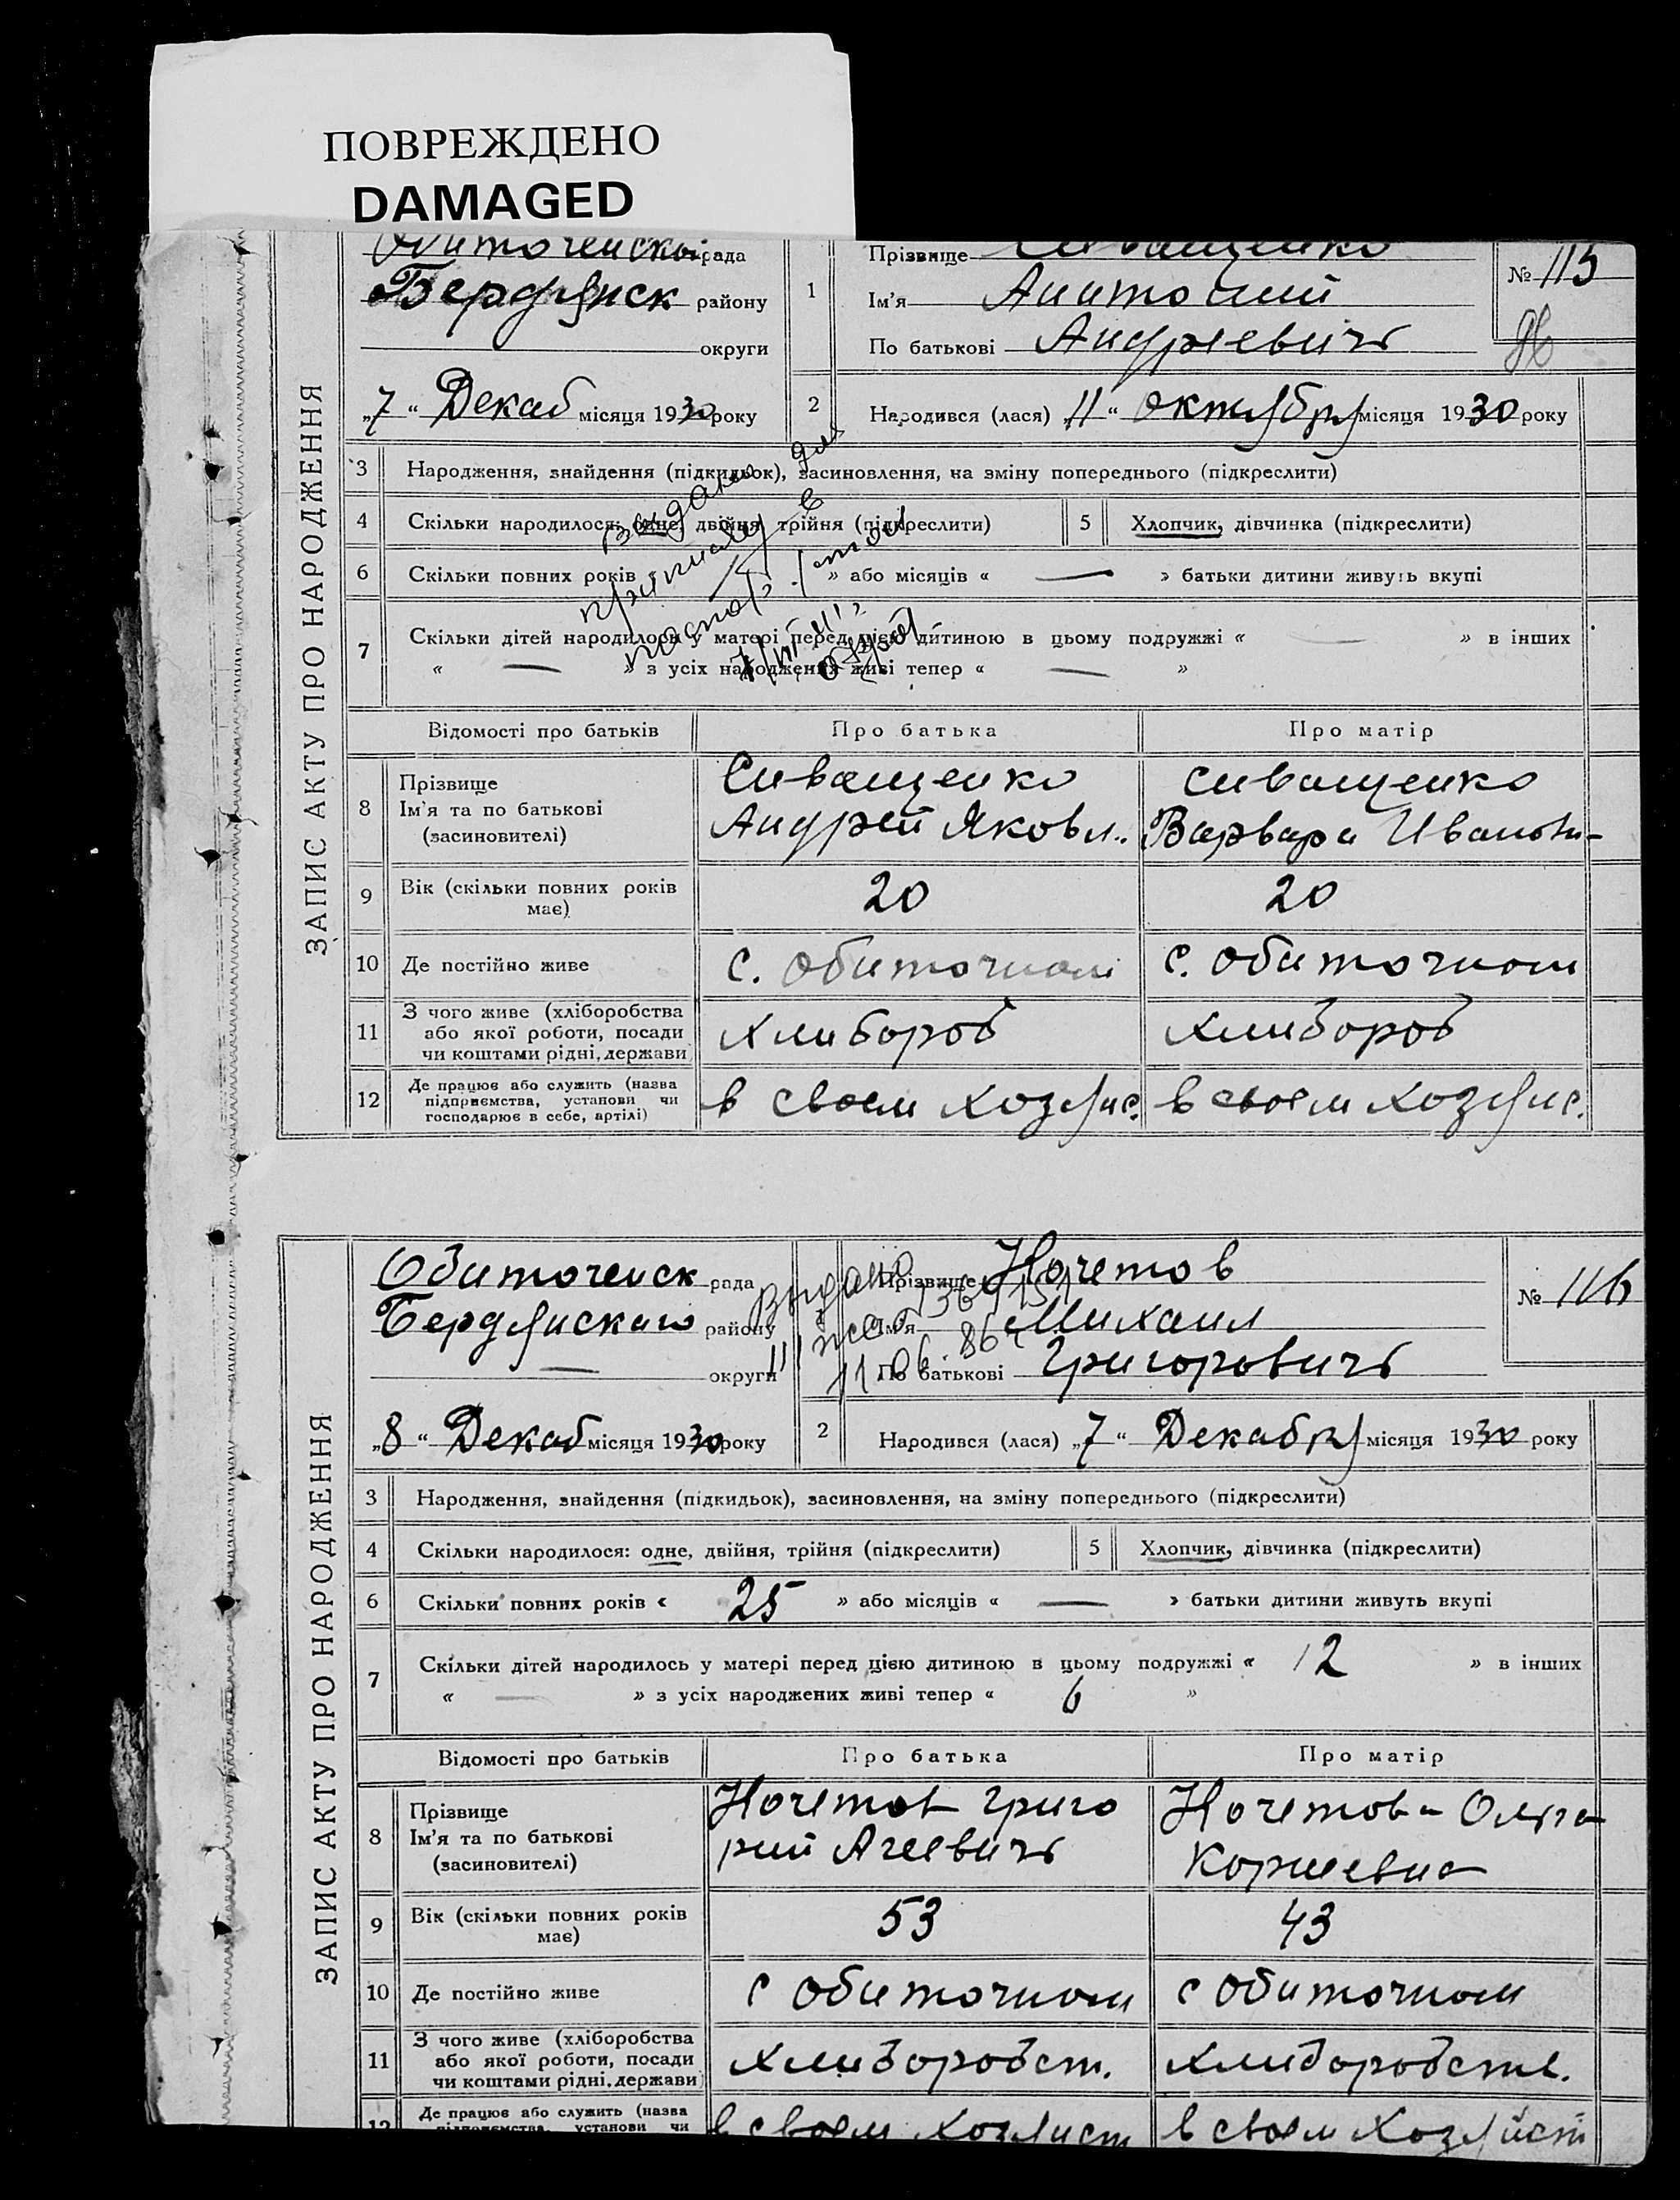 ПОВРЕЖДЕНО
DAMAGED
ЗАПИС АКТУ ПРО НАРОДЖЕННЯ
рада
Бердянск району
округи
„7“ Декаб місяця 1930 року
1
Прізвище Сиващенко
Ім'я Анатолий
По батькові Андреевичъ
№ 115
2 Народився (лася) „11“ октября місяця 1930 року
3 Народження, знайдення (підкидьок), засиновлення, на зміну попереднього (підкреслити)
4 Скільки народилося: одне, двійня, трійня (підкреслити) 5 Хлопчик, дівчинка (підкреслити)
6 Скільки повних років « » або місяців « — » батьки дитини живуть вкупі
7 Скільки дітей народилось у матері перед цією дитиною в цьому подружжі « — » в інших
« — » з усіх народжених живі тепер « — »
Відомості про батьків Про батька Про матір
8 Прізвище Ім'я та по батькові (засиновителі)
Сиващенко Андрей Яковл.
Сиващенко Варвара Ивановн-
9 Вік (скільки повних років має) 20 20
10 Де постійно живе с. Обиточном с. Обиточном
11 З чого живе (хліборобства або якої роботи, посади чи коштами рідні, держави) хлибороб хлибороб
12 Де працює або служить (назва підприємства, установи чи господарює в себе, артілі) в своем хозяис. в своем хозяис.
ЗАПИС АКТУ ПРО НАРОДЖЕННЯ
Обиточенск рада
Бердянскаго району
— округи
„8“ Декаб місяця 1930 року
Выдано
11.06.86
Прізвище Кочетов
Ім'я Михаил
По батькові Григоровичъ
№ 116
2 Народився (лася) „7“ Декабря місяця 1930 року
3 Народження, знайдення (підкидьок), засиновлення, на зміну попереднього (підкреслити)
4 Скільки народилося: одне, двійня, трійня (підкреслити) 5 Хлопчик, дівчинка (підкреслити)
6 Скільки повних років « 25 » або місяців « — » батьки дитини живуть вкупі
7 Скільки дітей народилось у матері перед цією дитиною в цьому подружжі « 12 » в інших
« — » з усіх народжених живі тепер « 6 »
Відомості про батьків Про батька Про матір
8 Прізвище Ім'я та по батькові (засиновителі)
Кочетов Григорий Агеевичъ
Кочетова Олга Корнеевна
9 Вік (скільки повних років має) 53 43
10 Де постійно живе с Обиточном с Обиточном
11 З чого живе (хліборобства або якої роботи, посади чи коштами рідні, держави) хлиборобст. хлиборобств.
12 Де працює або служить (назва підприємства, установи чи в своем хозяист в своем хозяйст